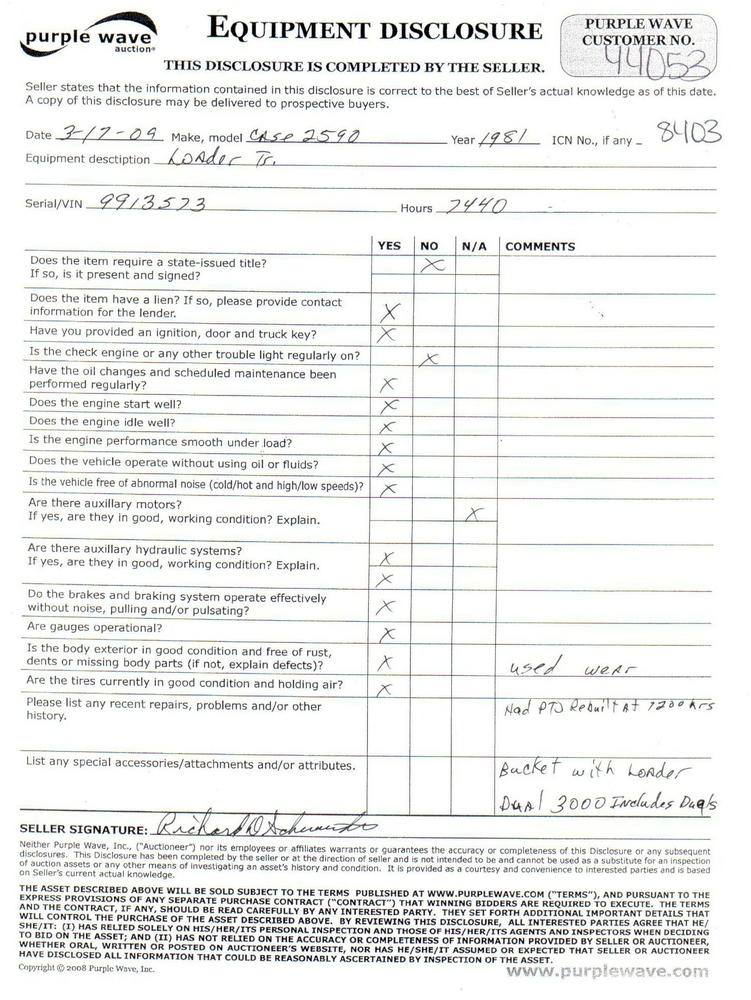 purple wave
auction®
EQUIPMENT DISCLOSURE
PURPLE WAVE
CUSTOMER NO.
44053
THIS DISCLOSURE IS COMPLETED BY THE SELLER.
Seller states that the information contained in this disclosure is correct to the best of Seller's actual knowledge as of this date.
A copy of this disclosure may be delivered to prospective buyers.
Date 3-17-09 Make, model CASE 2590 Year 1981 ICN No., if any 8403
Equipment desctiption Loader Tr.
Serial/VIN 9913573 Hours 7440
YES NO N/A COMMENTS
Does the item require a state-issued title? X
If so, is it present and signed?
Does the item have a lien? If so, please provide contact
information for the lender. X
Have you provided an ignition, door and truck key? X
Is the check engine or any other trouble light regularly on? X
Have the oil changes and scheduled maintenance been
performed regularly? X
Does the engine start well? X
Does the engine idle well? X
Is the engine performance smooth under load? X
Does the vehicle operate without using oil or fluids? X
Is the vehicle free of abnormal noise (cold/hot and high/low speeds)? X
Are there auxillary motors? X
If yes, are they in good, working condition? Explain.
Are there auxillary hydraulic systems? X
If yes, are they in good, working condition? Explain. X
Do the brakes and braking system operate effectively
without noise, pulling and/or pulsating? X
Are gauges operational? X
Is the body exterior in good condition and free of rust,
dents or missing body parts (if not, explain defects)? X used wear
Are the tires currently in good condition and holding air? X
Please list any recent repairs, problems and/or other
history.
Had PTO Rebuilt At 7200 hrs
List any special accessories/attachments and/or attributes.
Bucket with Loader
Dual 3000 Includes Duals
SELLER SIGNATURE: Richard D
Neither Purple Wave, Inc., ("Auctioneer") nor its employees or affiliates warrants or guarantees the accuracy or completeness of this Disclosure or any subsequent
disclosures. This Disclosure has been completed by the seller or at the direction of seller and is not intended to be and cannot be used as a substitute for an inspection
of auction assets or any other means of investigating an asset's history and condition. It is provided as a courtesy and convenience to interested parties and is based
on Seller's current actual knowledge.
THE ASSET DESCRIBED ABOVE WILL BE SOLD SUBJECT TO THE TERMS PUBLISHED AT WWW.PURPLEWAVE.COM ("TERMS"), AND PURSUANT TO THE
EXPRESS PROVISIONS OF ANY SEPARATE PURCHASE CONTRACT ("CONTRACT") THAT WINNING BIDDERS ARE REQUIRED TO EXECUTE. THE TERMS
AND THE CONTRACT, IF ANY, SHOULD BE READ CAREFULLY BY ANY INTERESTED PARTY. THEY SET FORTH ADDITIONAL IMPORTANT DETAILS THAT
WILL CONTROL THE PURCHASE OF THE ASSET DESCRIBED ABOVE. BY REVIEWING THIS DISCLOSURE, ALL INTERESTED PARTIES AGREE THAT HE/
SHE/IT: (I) HAS RELIED SOLELY ON HIS/HER/ITS PERSONAL INSPECTION AND THOSE OF HIS/HER/ITS AGENTS AND INSPECTORS WHEN DECIDING
TO BID ON THE ASSET; AND (II) HAS NOT RELIED ON THE ACCURACY OR COMPLETENESS OF INFORMATION PROVIDED BY SELLER OR AUCTIONEER,
WHETHER ORAL, WRITTEN OR POSTED ON AUCTIONEER'S WEBSITE, NOR HAS HE/SHE/IT ASSUMED OR EXPECTED THAT SELLER OR AUCTIONEER
HAVE DISCLOSED ALL INFORMATION THAT COULD BE REASONABLY ASCERTAINED BY INSPECTION OF THE ASSET.
Copyright © 2008 Purple Wave, Inc.
www.purplewave.com